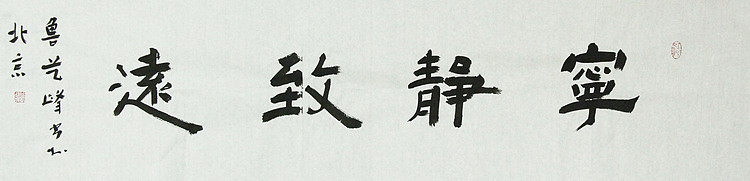 寧靜致遠
魯芝峰書於
北京